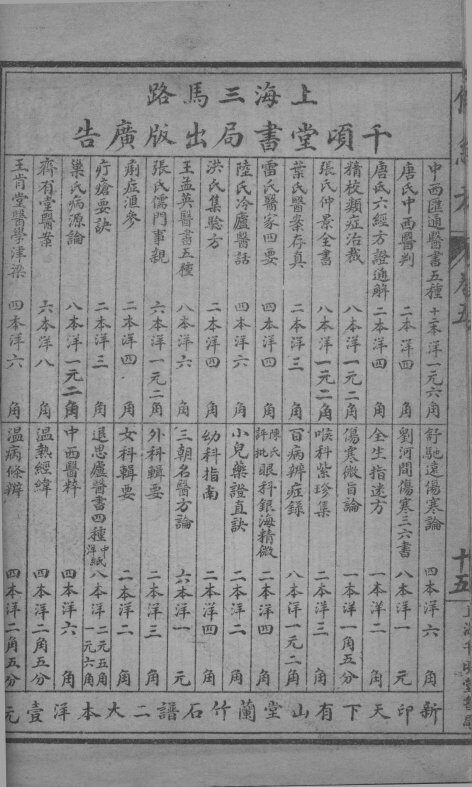 上海三馬路
千頃堂書局出版廣告
中西匯通醫書五種 十二本 洋一元六角
唐氏中西醫判 二本洋四角
唐氏六經方證通解 二本洋四角
精校類症治裁 八本洋一元二角
張氏仲景全書 八本洋一元二角
葉氏醫案存真 二本洋三角
雷氏醫家四要 四本洋四角
陸氏冷廬醫話 四本洋六角
洪氏集驗方 二本洋四角
王孟英醫書五種 八本洋六角
張氏儒門事親 六本洋一元二角
痢症滙參 二本洋四角
疔瘡要訣 二本洋三角
巢氏病源論 八本洋一元二角
齊有堂醫案 六本洋八角
王肯堂醫學津梁 四本洋六角
舒馳遠傷寒論 四本洋六角
劉河間傷寒三六書 八本洋一元
全生指迷方 一本洋二角
傷寒微旨論 一本洋一角五分
喉科紫珍集 二本洋三角
百病辨症錄 八本洋一元二角
陳氏評批眼科銀海精微 二本洋四角
小兒藥證直訣 二本洋二角
幼科指南 二本洋四角
三朝名醫方論 六本洋一元
外科輯要 二本洋三角
女科輯要 二本洋二角
退思廬醫書四種 中紙洋紙 八本洋 二元五角 一元六角
中西醫粹 四本洋六角
溫熱經緯 四本洋二角五分
溫病條辨 四本洋二角五分
新印天下有山堂蘭竹石譜二大本洋壹元
卷五
十五